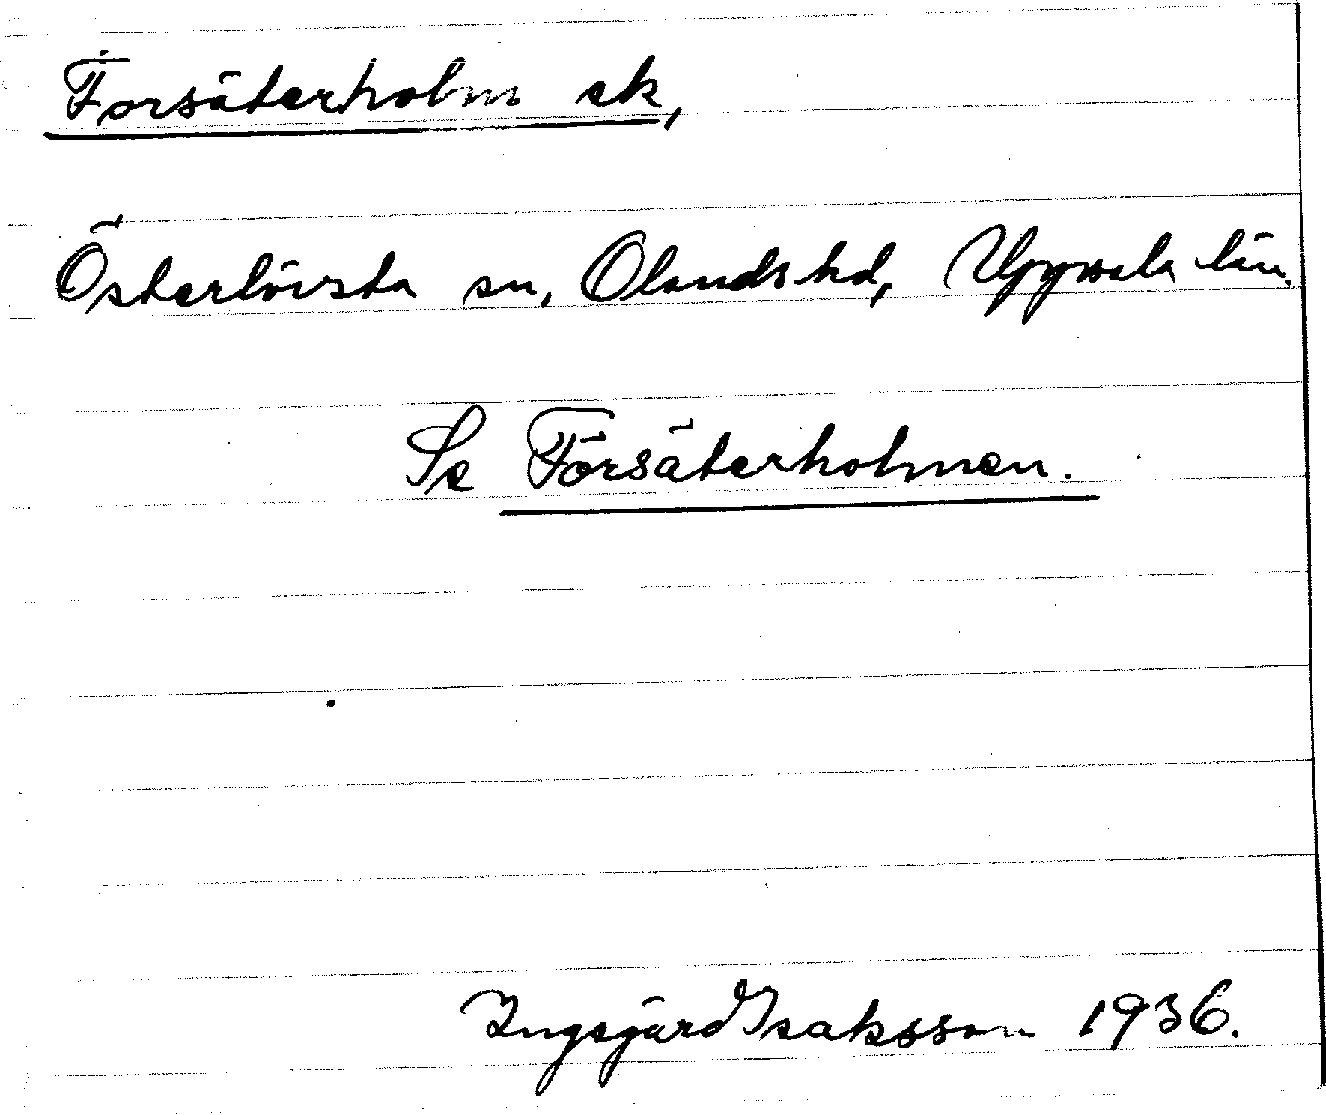 Försäterholm ek,
Österlövsta sn, Olands hd, Uppsala län.
Se Försäterholmen.
Ingegärd Isaksson 1936.